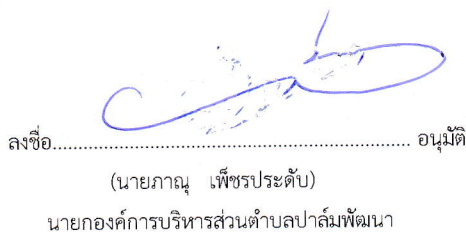 ลงชื่อ.................................................................. อนุมัติ
(นายภาณุ เพ็ชรประดับ)
นายกองค์การบริหารส่วนตำบลปาล์มพัฒนา